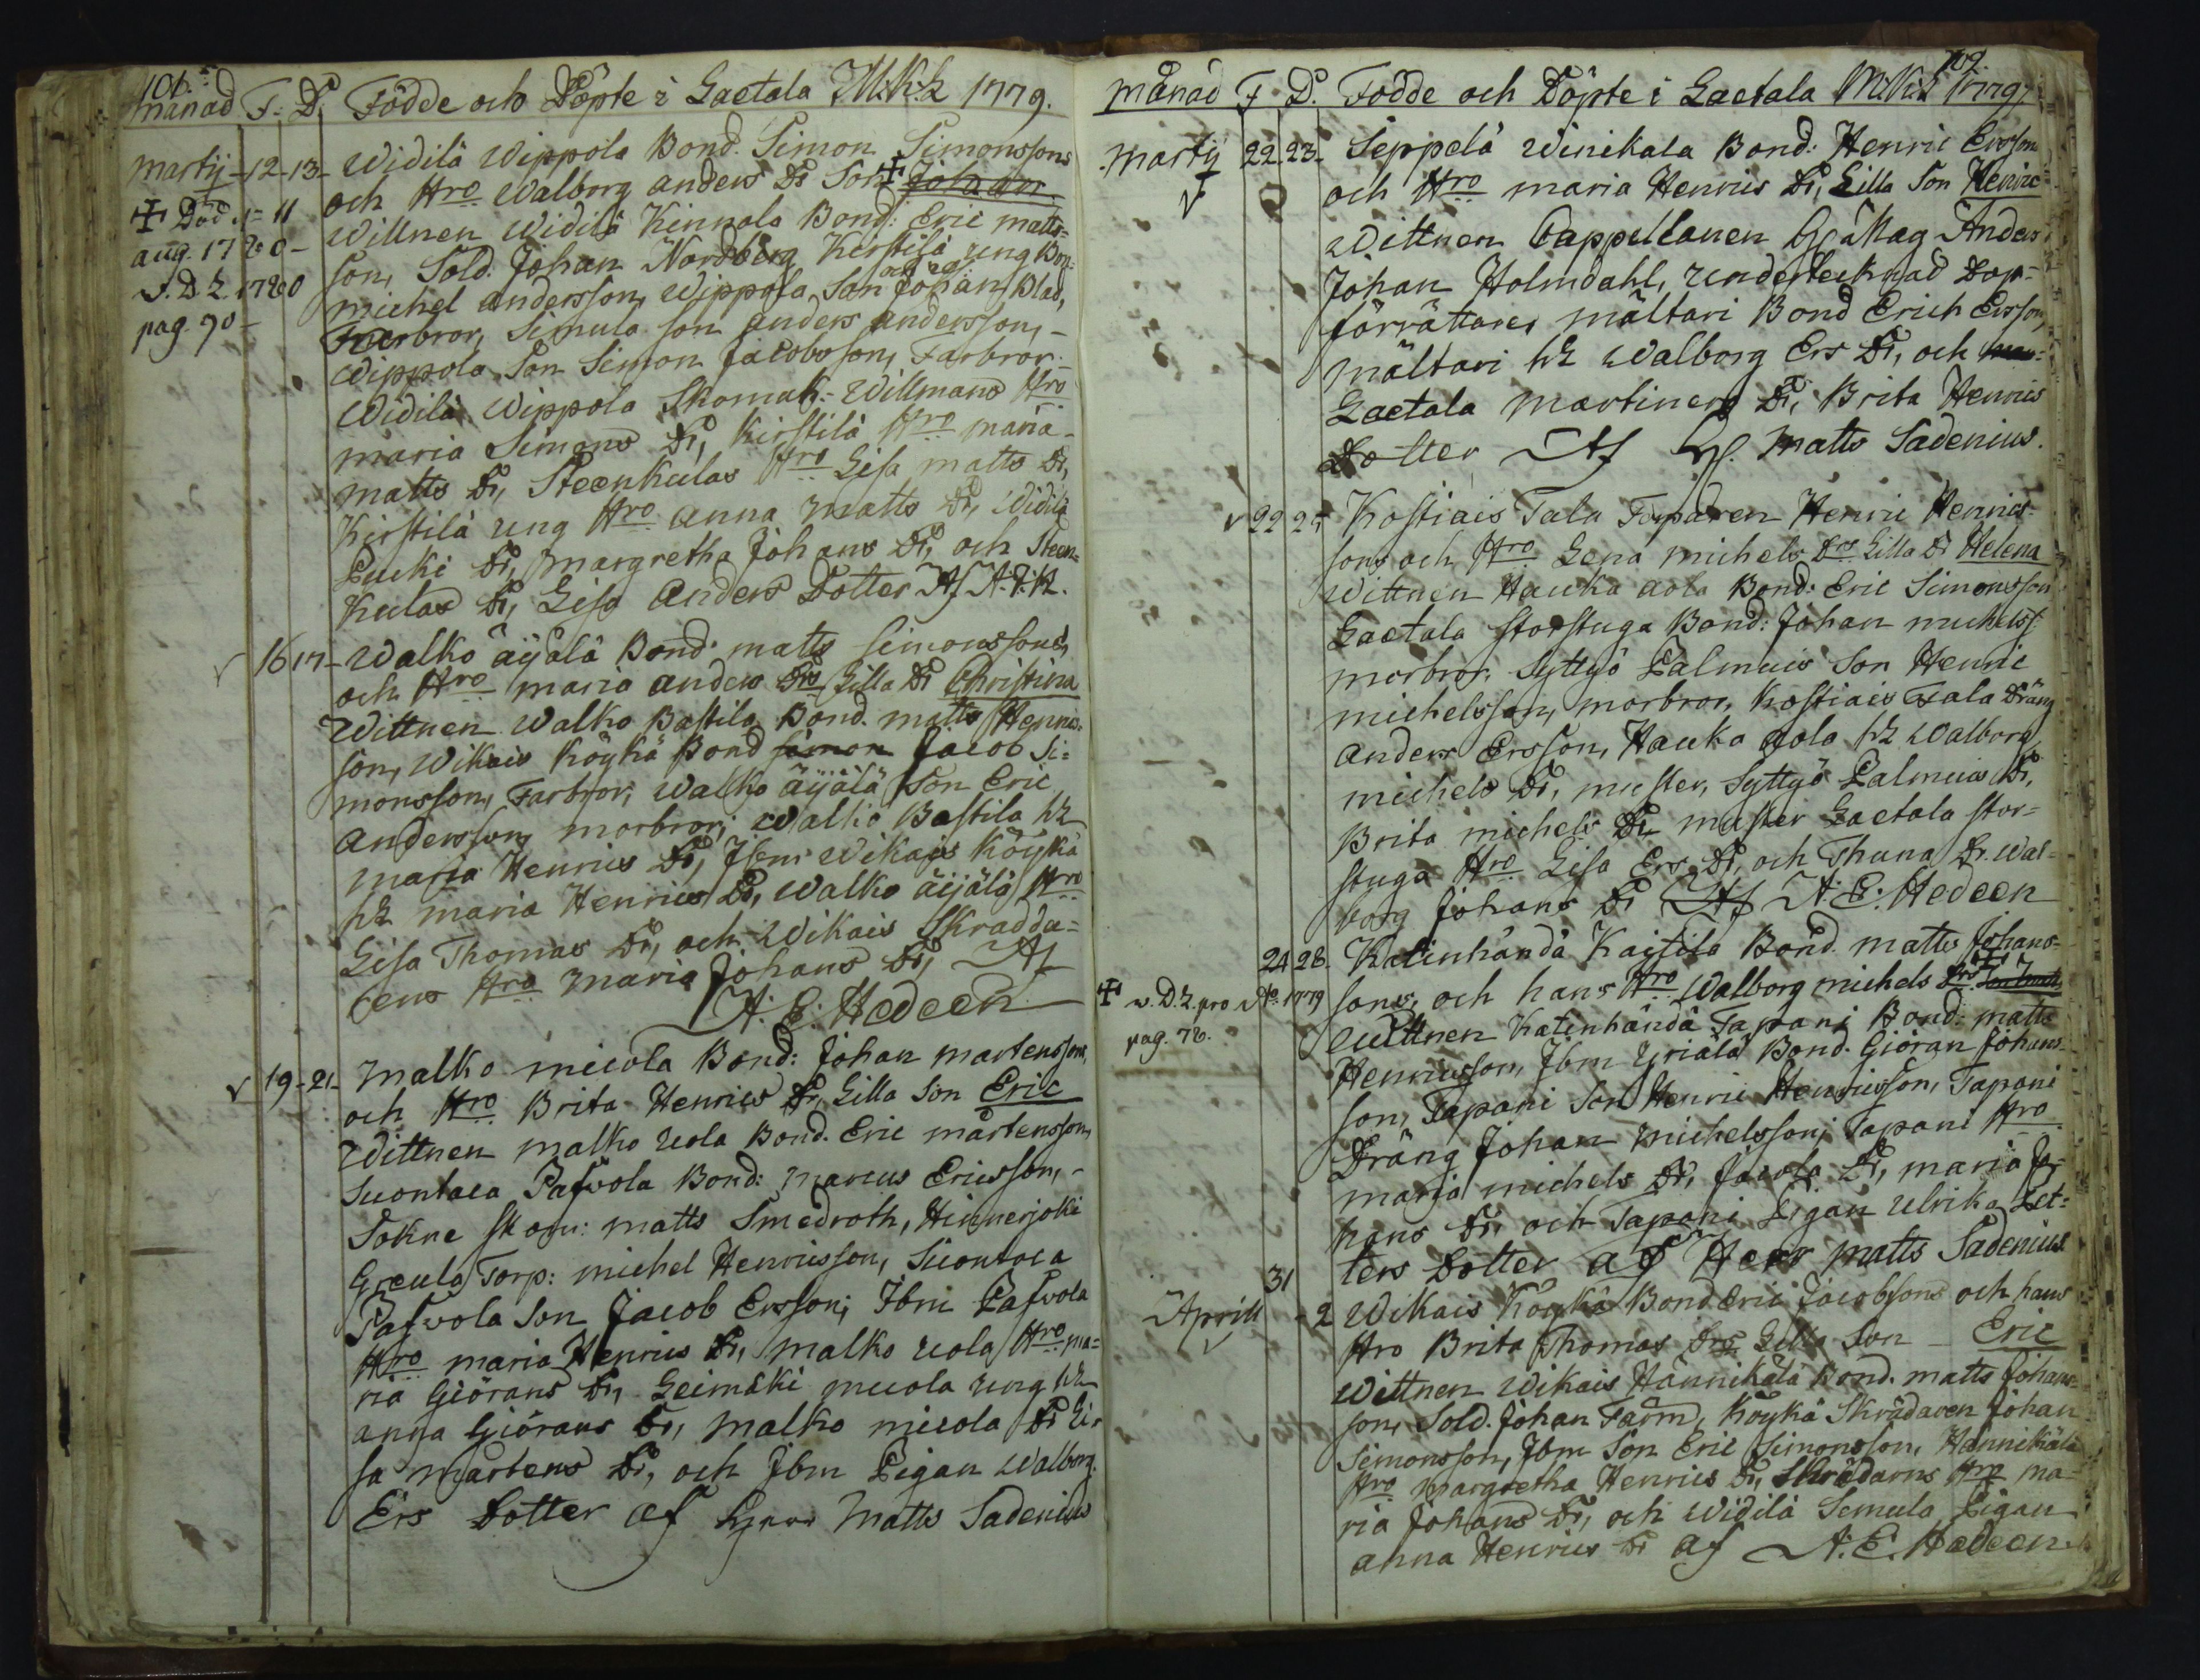 101.
månad F. D. Födde och Döpte i Laetala M.K.h 1779.
Martij 12 13 Widilä Wippola Bond. Simon Simonssons
och Hro Walborg anders Dr Son Johan
✝ Död d. 11 Willnen Widilä Kinnala Bond: Eric matts=
aug. 1780 son, Sold. Johan Nordberg Kirstilä ung Bon:
v. D. L 1780 michel andersson, Wippola Son Johan Blad,
pag. 90 Simula son anders andersson,
Wippola Son Simon Jacobsson, Farbror.
Widilä Wippola Skomak: Willmans Hro
maria Simons Dr, Kirstilä Hro maria
matts Dr, Steenkulas Hro Lisa matts Dr,
Kirstilä ung Hro anna matts Dr, Widilä
Pucki Dr, margretha Johans Dr, och Steen
Kulas Dr, Lisa anders Dotter Af
16 17 Walko äijälä Bond. matts Simonssons
och Hro maria anders Drs Lilla Dr Christina
Wittnen Walko Bastila Bond. matts Henrics
son, Wikais Köykä Bond simon Jacob Si=
monsson, Farbror, Walko äijälä Son Eric
andersson, morbror; Walko Bastila h
maria Henrics Dr, Ibm Wikais Köykä
h maria Henrics Dr, Walko äijälä Hro
Lisa Thomas Dr, och Wikais Skradda=
rens Hro maria Johans Dr, Af
A. E. Hedeen
19 21 Malko micola Bond: Johan martenssons
och Hro Brita Henrics Dr, Lilla Son Eric
Wittnen malko uola Bond. Eric mårtensson,
Suontaca Pafvola Bond: marcus Ericsson,
Sokne skom: matts Smedroth, Hinnerjoki
Greula Torp: michel Henricsson, Suontaca
Pafvola Son Jacob Ersson, Ibm Pafvola
Hro maria Henrics Dr, malko uola Hro ma=
ria Giörans Dr, Leimäki micola ung h
anna Giörans Dr, malko micola Dr Li=
sa mårtens Dr, och Ibm Pigan Walborg
Ers Dotter af Matts Sadenius
109.
månad F D. Födde och Döpte i Laetala M.K.h 1779
Martij 22 23 Seppelä Winikala Bond: Henric Ersson
och Hro maria Henrics Dr, Lilla Son Henric
Wittnen Cappellanen Anders
Johan Holmdahl, undertecknad Dop=
förrättare, mältari Bond Erich Ersson,
mältari h Walborg Ers Dr, och
Laetala martinens Dr, Brita Henrics
Dotter Af H. Matts Sadenius.
22 25 Kostiais Tala Torparen Henric Henrics=
sons och Hro Lena michels Drs Lilla Dr Helena
Wittnen Hauka aola Bond: Eric Simonsson
Laetala storstuga Bond: Johan michelss
morbror, Syttyö Palmuis Son Henric
michelsson, morbror, Kostiais Tala Dräng
anders Ersson, Hauka aola h Walborg
michels Dr, muster, Syttyö Palmuis Dr,
Brita michels Dr, muster Laetala stor=
stuga Hro Lisa Ers Dr, och Thuna Dr. Wal=
borg Johans Dr Af A. E. Hedeen
24 28 Katinhända Kaisila Bond. matts Johans=
✝ v. D.L. pro Ao 1779 sons, och hans Hro Walborg michels Drs
pag. 78. Wittnen Katinhända Tapani Bond: matts
Henricsson, Ibm Uriälä Bond. Giöran Johans=
son, Tapani Son Henric Henricsson, Tapani
Dräng Johan michelsson, Tapani Hro
maria michels Dr, Jacola Dr, maria Jo=
hans Dr, och Tapani Pigan Ulrika Pet=
ters Dotter af Herr Matts Sadenius
31
Aprill 2 Wikais Köykä Bond Eric Jacobsons och hans
Hro Brita Thomas Drs Lilla Son Eric
Wittnen Wikais Hännikälä Bond. matts Johans=
son, Sold. Johan Farm, Köykä Skrädaren Johan
Simonsson, Ibm Son Eric Simonsson, Hännikälä
Hro margretha Henrics Dr, Skrädarns Hro ma=
ria Johans Dr, och Widilä Semula Pigan
anna Henrics Dr af A. E. Hedeen